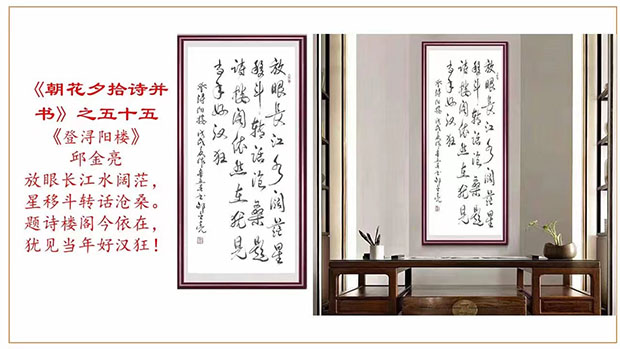 《朝花夕拾诗并
书》之五十五
《登浔阳楼》
邱金亮
放眼长江水阔茫，
星移斗转话沧桑。
题诗楼阁今依在，
犹见当年好汉狂！
放眼長江水阔茫星
移斗转话沧桑题
诗楼阁依然在犹见
当年好汉狂
登浔阳楼
放眼長江水阔茫星
移斗转话沧桑题
诗楼阁依然在犹见
当年好汉狂
登浔阳楼